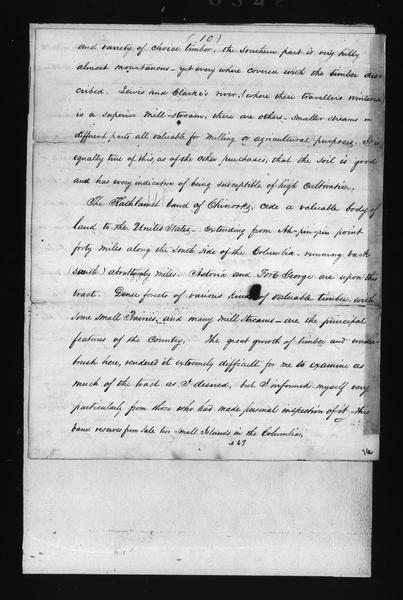 (10)
and variety of choice timber, the southern part is very hilly
almost mountanous - yet every where covered with the timber des-
cribed. Lewis and Clarke's river, (where these travellers wintered)
is a superior mill-stream, there are others - smaller streams in
different parts all valuable for milling or agricultural purposes. It is
equally true of this, as of the other purchases, that the soil is good
and has every indication of being susceptible of high cultivation.
The Kathlamet band of Chinooks, cede a valuable body of
land to the United States - extending from point
forty miles along the South side of the Columbia - running back
(south) about miles. Astoria and Fort George are upon this
tract. Dense forests of various kinds of valuable timber with
some small Prairies, and many mill streams - are the principal
features of the Country. The great growth of timber and under-
brush here, rendered it extremely difficult for me to examine as
much of the tract as I desired, but I informed myself very
particularly from those who had made personal inspection of it - this
band reserves from sale two small Islands in the Columbia.